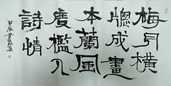 梅月横
牕成畫
本蘭風
度檻入
詩情